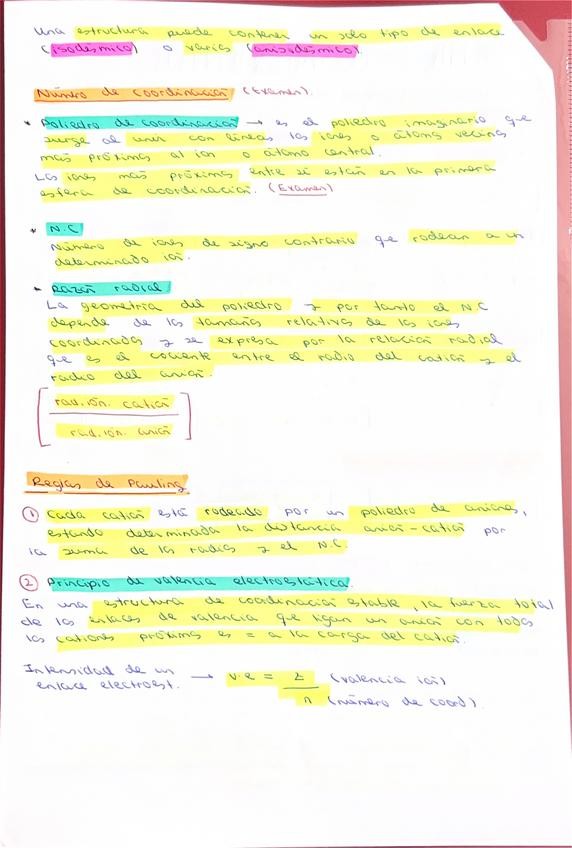 Una estructura puede contener un solo tipo de enlace
(isodésmico) o varios (anisodésmico).
Número de Coordinación (Examen).
* Poliedro de coordinación → es el poliedro imaginario que
surge al unir con líneas los iones o átomos vecinos
más próximos al ion o átomo central.
Los iones más próximos entre sí están en la primera
esfera de coordinación. (Examen)
* N.C
Número de iones de signo contrario que rodean a un
determinado ion.
• Razón radial
La geometría del poliedro y por tanto el N.C
depende de los tamaños relativos de los iones
coordinados y se expresa por la relación radial
que es el cociente entre el radio del catión y el
radio del anión.
rad.ión. catión
rad.ión. anión
Reglas de Pauling
① Cada catión está rodeado por un poliedro de aniones,
estando determinada la distancia anión-catión por
la suma de los radios y el N.C.
② Principio de valencia electrostática.
En una estructura de coordinación estable, la fuerza total
de los enlaces de valencia que ligan un anión con todos
los cationes próximos es = a la carga del catión.
Intensidad de un
enlace electroest. → v.e = Z (valencia ión)
n (número de coord).